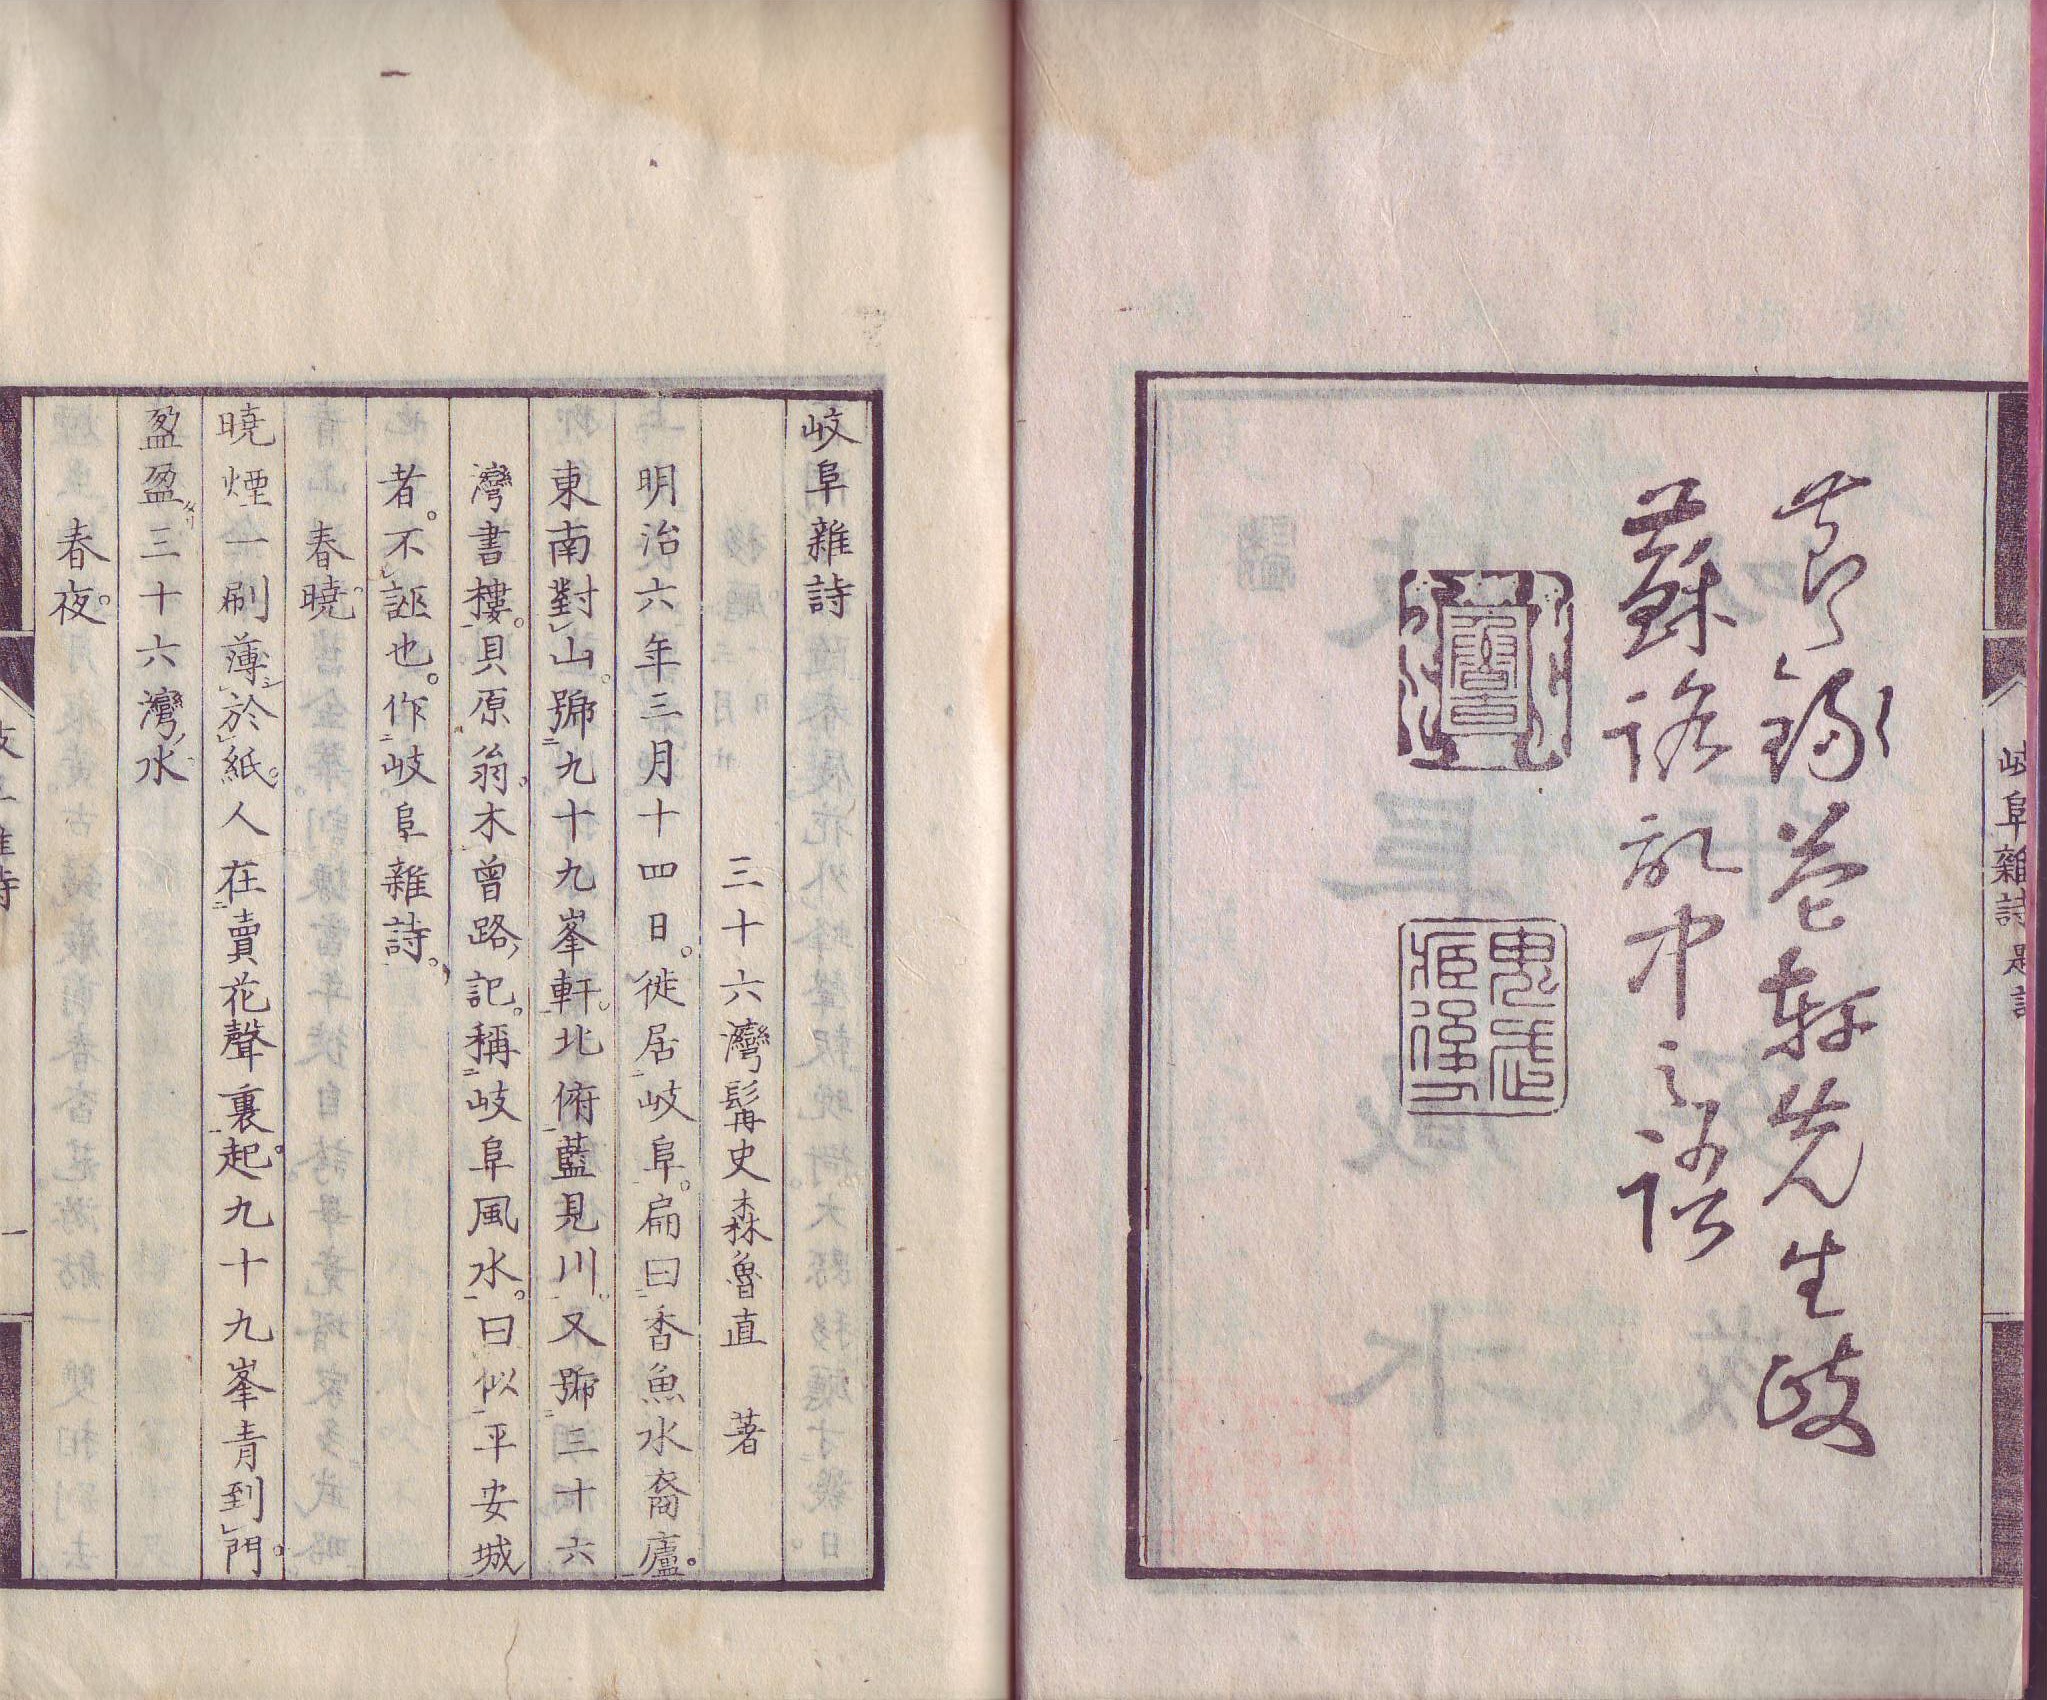 岐阜雜詩題詞
先生岐
蘇路記中之語
岐阜雜詩
三十六灣髯史森魯直　著
明治六年三月十四日。徙居岐阜。扁曰香魚水裔廬。
東南對山。號九十九峯軒。北俯藍見川。又號三十六
灣書樓。貝原翁。木曾路記。稱岐阜風水。曰似平安城
者。不誣也。作岐阜雜詩。
春曉。
曉煙一刷薄於紙。人在賣花聲裏起。九十九峯青到門。
盈盈三十六灣水
春夜。